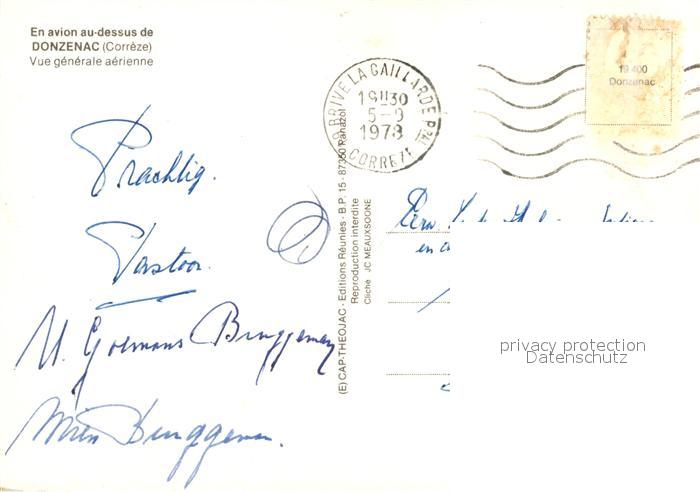 En avion au-dessus de
DONZENAC (Corrèze)
Vue générale aérienne
19 BRIVE LA GAILLARDE Pal
19H30
5-9
1978
CORREZE
19 400
Donzenac
Prachtig.
Pastoor.
M. Goemans Bruggeman
Bruggeman.
(E) CAP-THEOJAC - Editions Réunies - B.P. 15 - 87350 Panazol
Reproduction interdite
Cliché JC MEAUXSOONE
en
privacy protection
Datenschutz